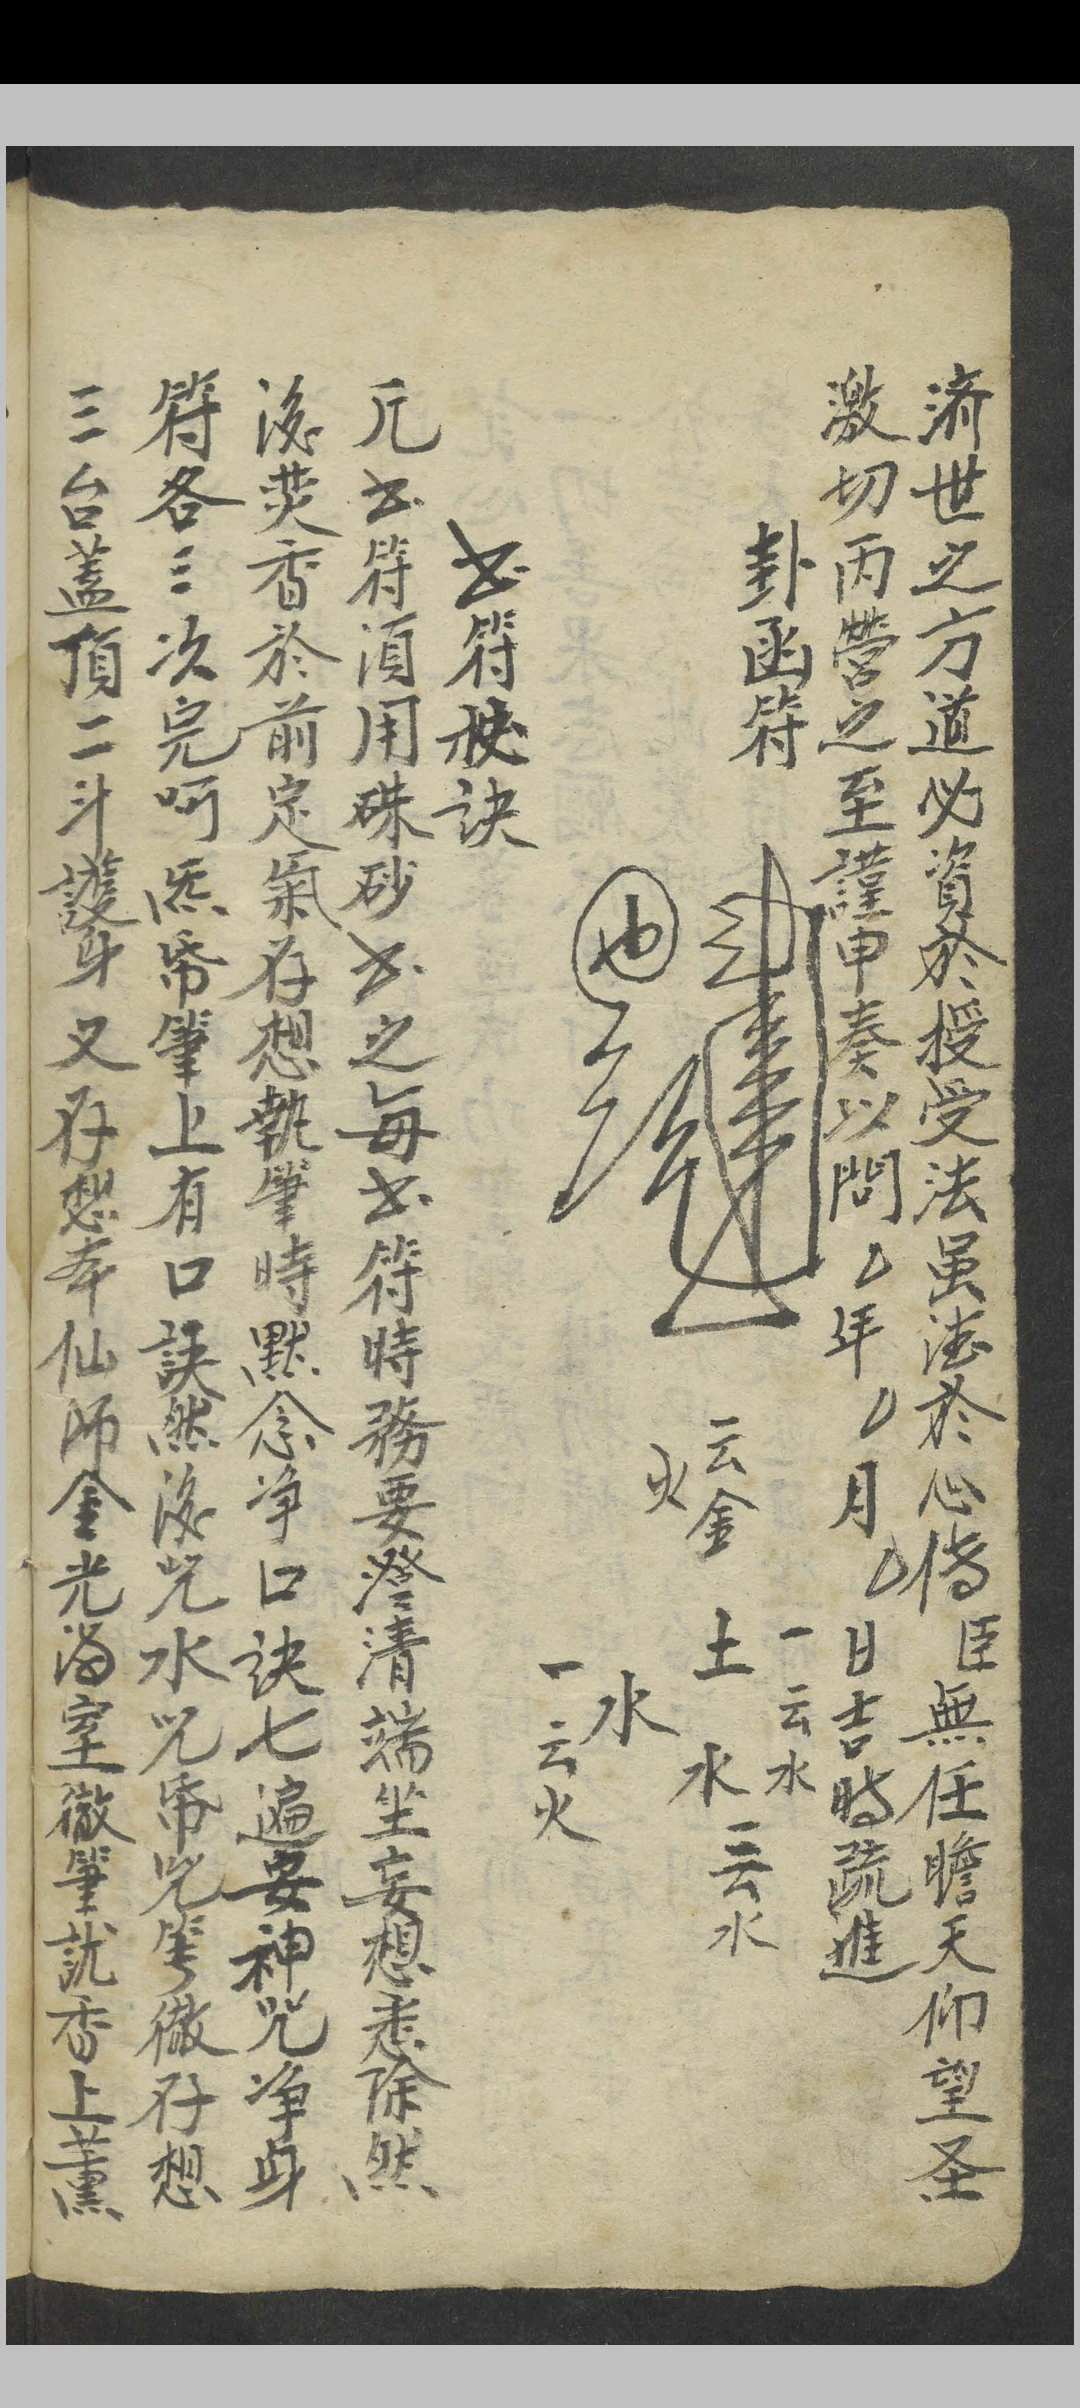 濟世之方道必資於授受法虽法於心傳臣無任瞻天仰望圣
激切丙營之至謹申奏以問 年 月 日吉時疏進
卦函符
一云水
云金 土 水 云水
火 水
一云火
也
书符秘诀
凡书符湏用硃砂书之每书符時務要澄清端坐妄想悉除然
後焚香於前定氣存想執筆時默念净口诀七遍安神咒净身
符各三次完呵炁帋筆上有口訣然後咒水咒帋咒笔徹存想
三台蓋頂二斗護身又存想本仙师金光满室徹筆就香上薰